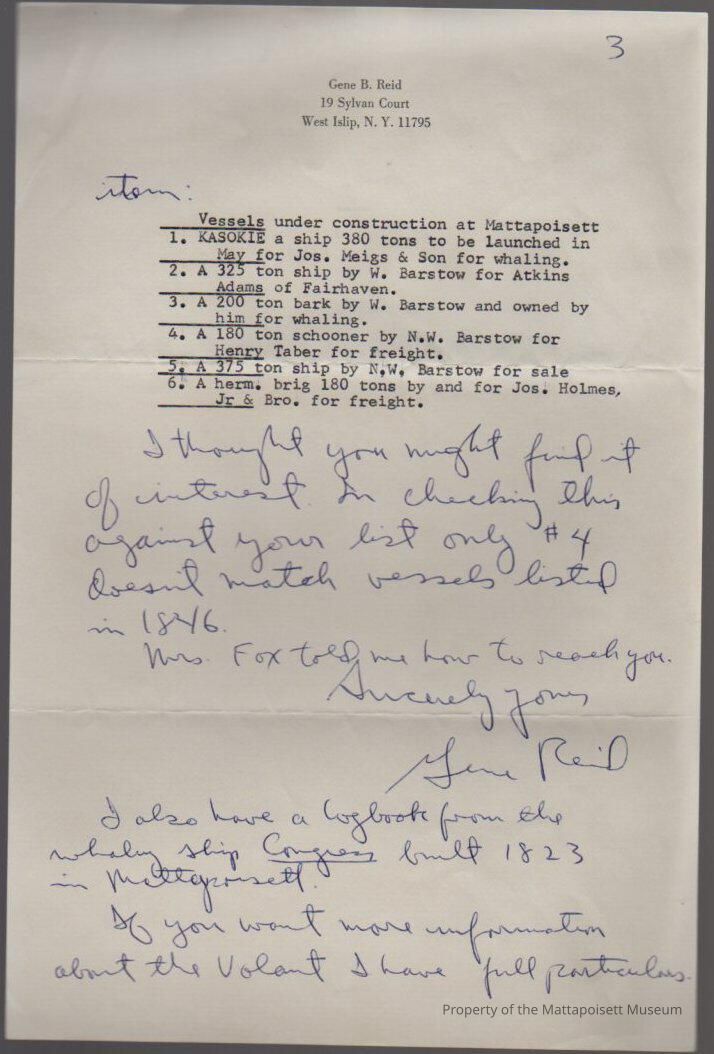 3
Gene B. Reid
19 Sylvan Court
West Islip, N. Y. 11795
item:
Vessels under construction at Mattapoisett
1. KASOKIE a ship 380 tons to be launched in
May for Jos. Meigs & Son for whaling.
2. A 325 ton ship by W. Barstow for Atkins
Adams of Fairhaven.
3. A 200 ton bark by W. Barstow and owned by
him for whaling.
4. A 180 ton schooner by N.W. Barstow for
Henry Taber for freight.
5. A 375 ton ship by N.W. Barstow for sale
6. A herm. brig 180 tons by and for Jos. Holmes,
Jr & Bro. for freight.
I thought you might find it
of interest. In checking this
against your list only #4
doesn't match vessels listed
in 1846.
Mrs. Fox told me how to reach you.
Sincerely yours
Gene Reid
I also have a logbook from the
whaling ship Congress built 1823
in Mattapoisett.
If you want more information
about the Volant I have full particulars.
Property of the Mattapoisett Museum